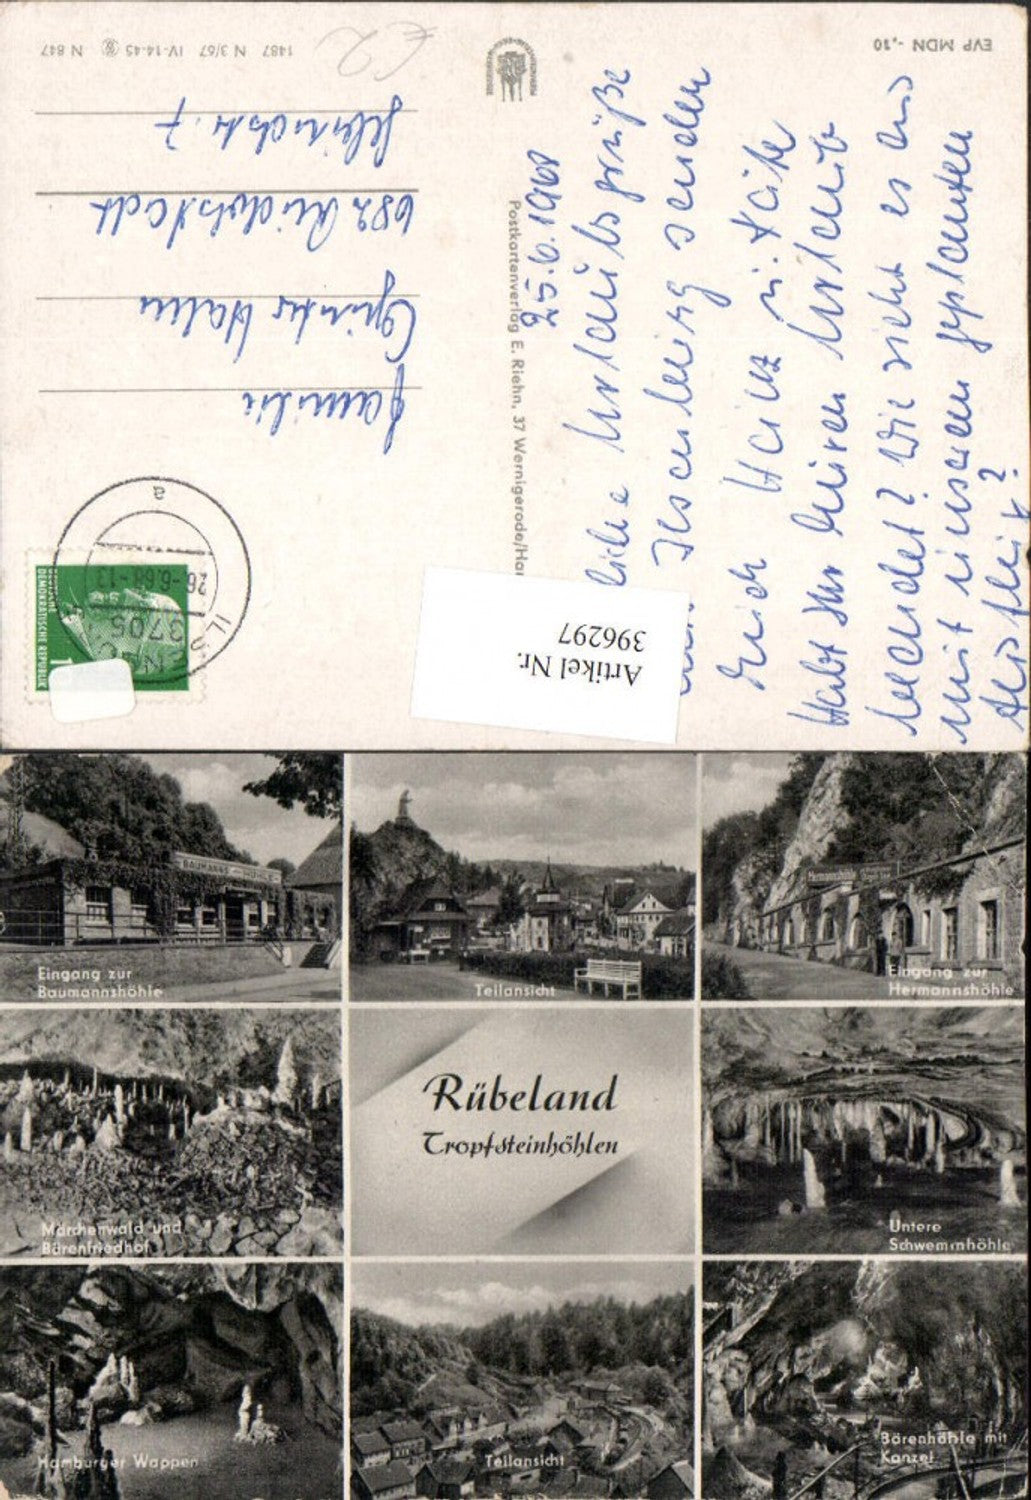 EVP MDN -,10
1487 N 3/67 IV-14-45 N 847
25.6.1968
liche Urlaubsgrüße
Ilsenburg senden
Euch Heinz u. Käte
Habt Ihr Euren Urlaub
beendet? Wie sieht es aus
mit unserem geplanten
Postkartenverlag E. Riehn, 37 Wernigerode/Har
Familie
Günter
682 Rudolstadt
7
a
26.-6.68-13
3705
ILSENBURG
DEUTSCHE
DEMOKRATISCHE REPUBLIK
Artikel Nr.
396297
BAUMANNS
Eingang zur
Baumannshöhle
Teilansicht
Hermannshöhle
Eingang zur
Hermannshöhle
Märchenwald und
Bärenfriedhof
Rübeland
Tropfsteinhöhlen
Untere
Schwemmhöhle
Hamburger Wappen
Teilansicht
Bärenhöhle mit
Kanzel